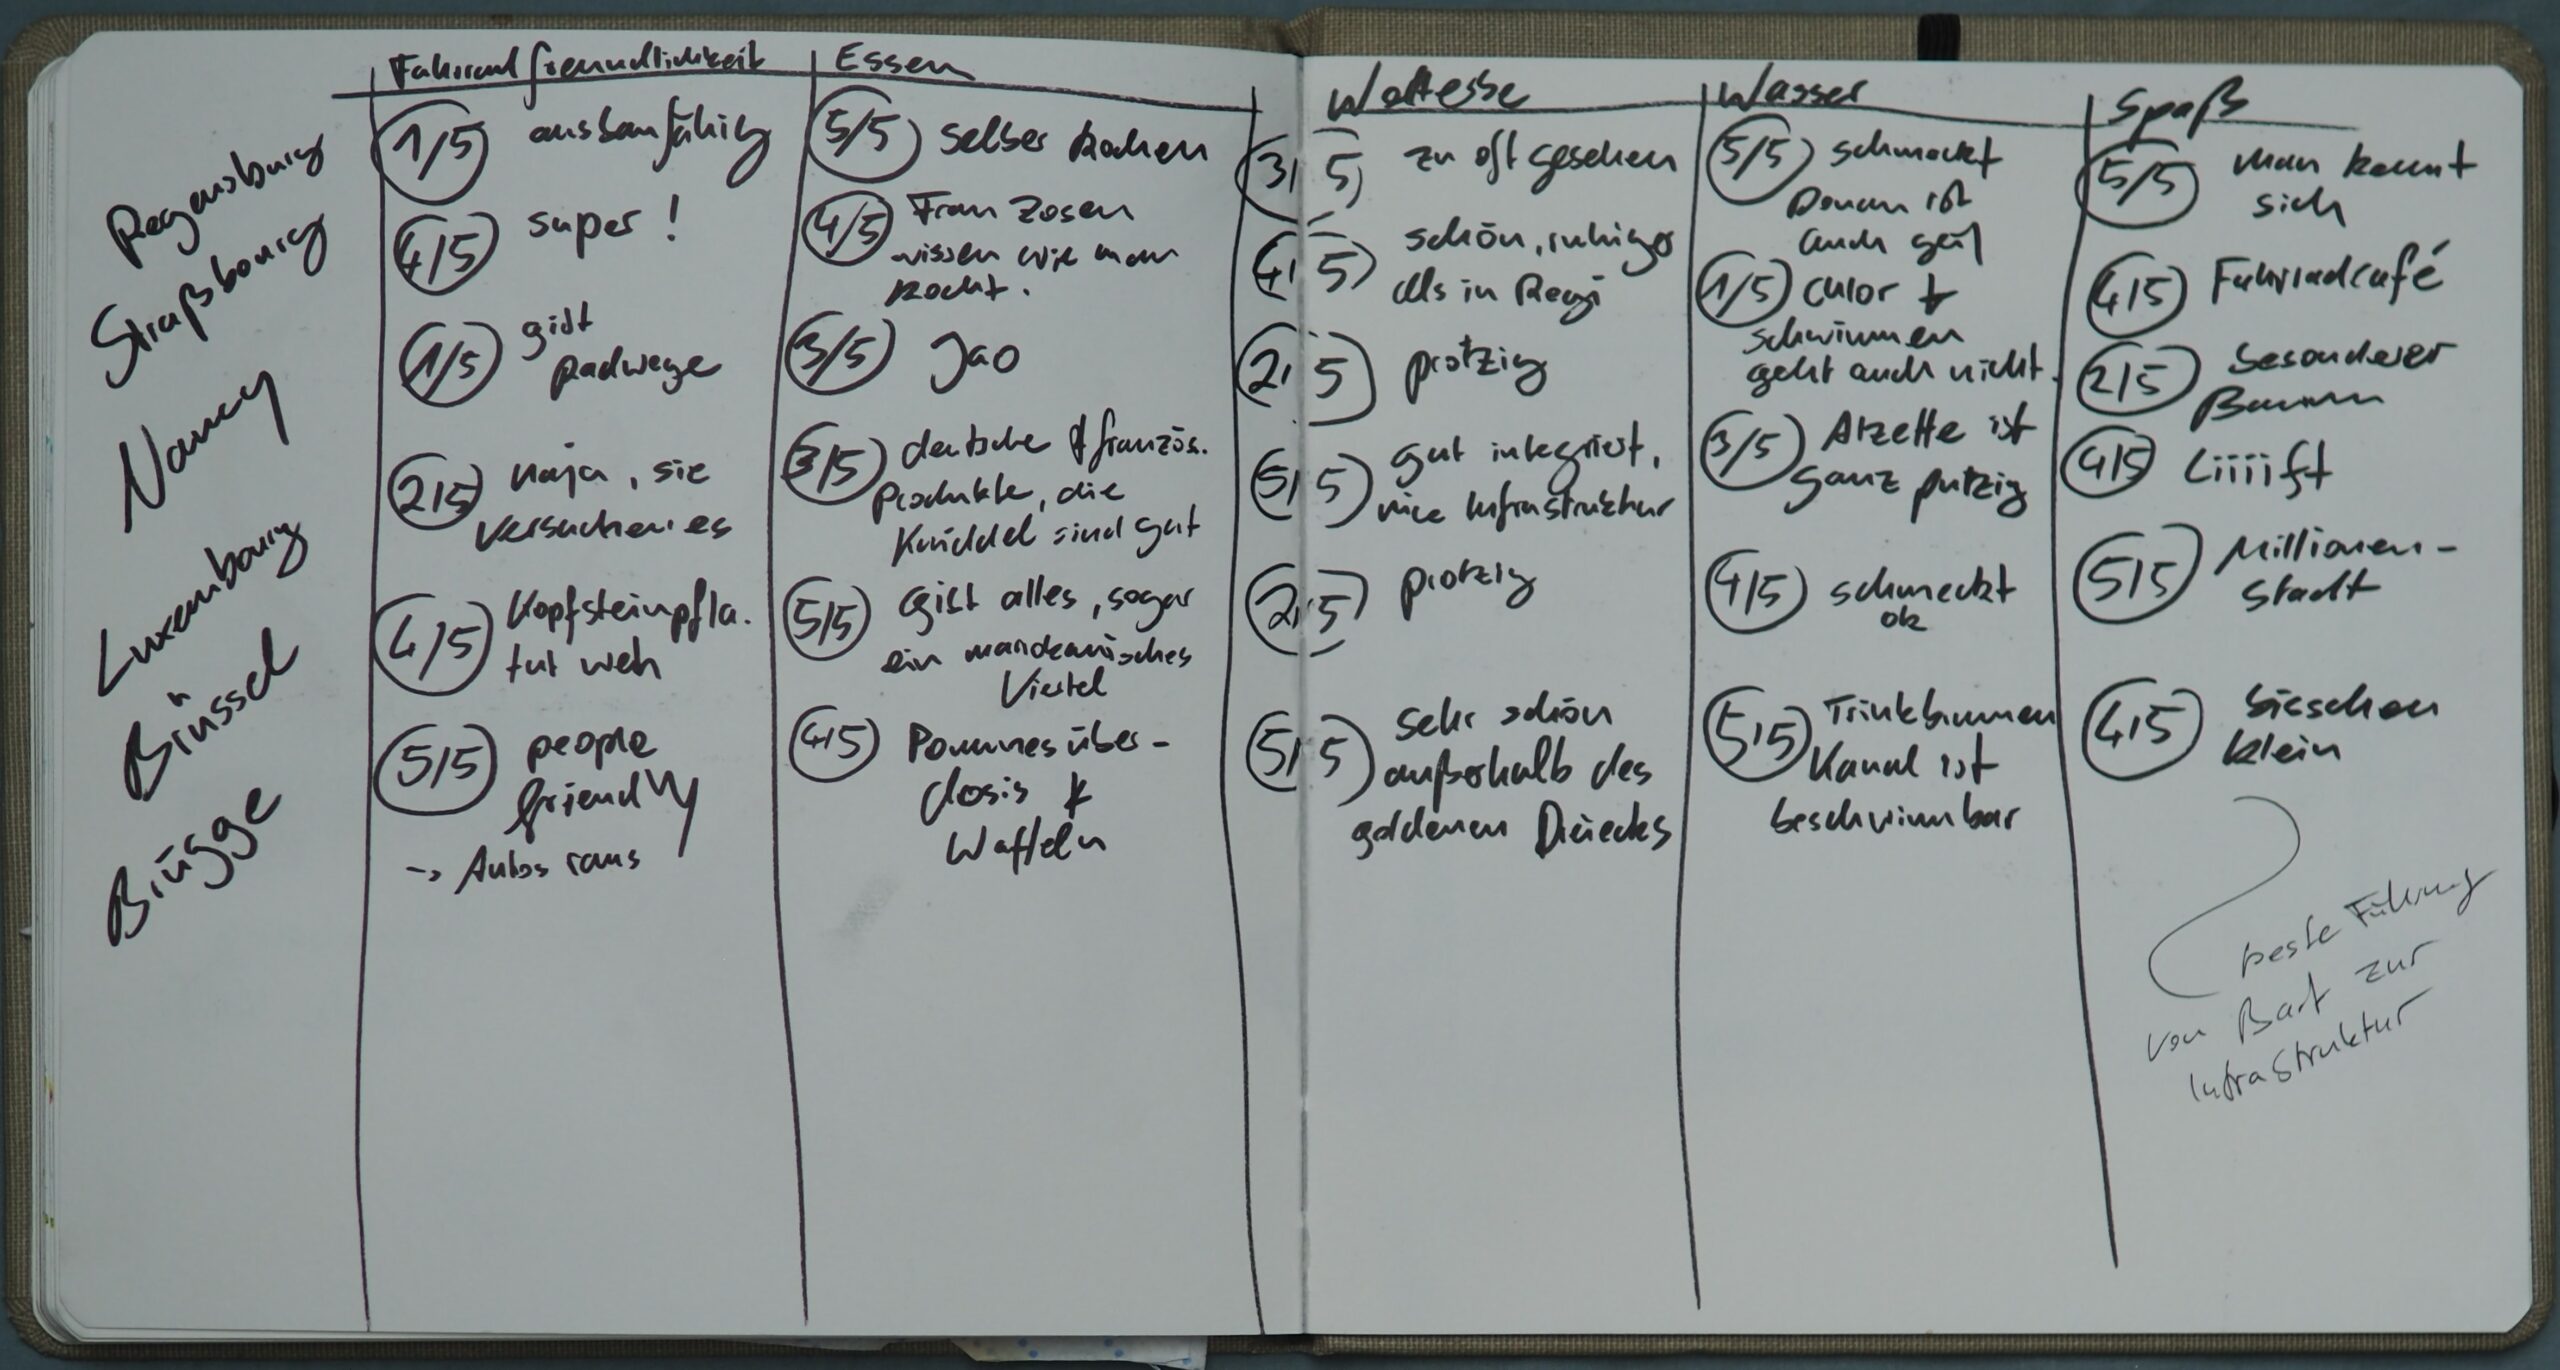 Fahrradfreundlichkeit
Essen
Welterbe
Wasser
Spaß
Regensburg
1/5 ausbaufähig
5/5 selber kochen
3/5 zu oft gesehen
5/5 schmeckt
Donau ist
auch geil
5/5 man kennt
sich
Straßbourg
4/5 super!
4/5 Franzosen
wissen wie man
kocht.
4/5 schön, ruhiger
als in Regi
1/5 Chlor +
schwimmen
geht auch nicht.
4/5 Fahrradcafé
Nancy
1/5 gibt
Radwege
3/5 Jao
2/5 protzig
2/5 besonderer
Baum
Luxembourg
2/5 naja, sie
versuchen es
3/5 deutsche & französ.
Produkte, die
Knüddel sind gut
5/5 gut integriert,
nice Infrastruktur
3/5 Alzette ist
ganz putzig
4/5 Liiiift
Brüssel
4/5 Kopfsteinpfla.
tut weh
5/5 gibt alles, sogar
ein
Viertel
2/5 protzig
4/5 schmeckt
ok
5/5 Millionen-
stadt
Brügge
5/5 people
friendly
-> Autos raus
4/5 Pommesüber-
dosis +
Waffeln
5/5 sehr schön
außerhalb des
goldenen Dreiecks
5/5 Trinkbrunnen
Kanal ist
beschwimmbar
4/5 bisschen
klein
beste Führung
von Bart zur
Infrastruktur